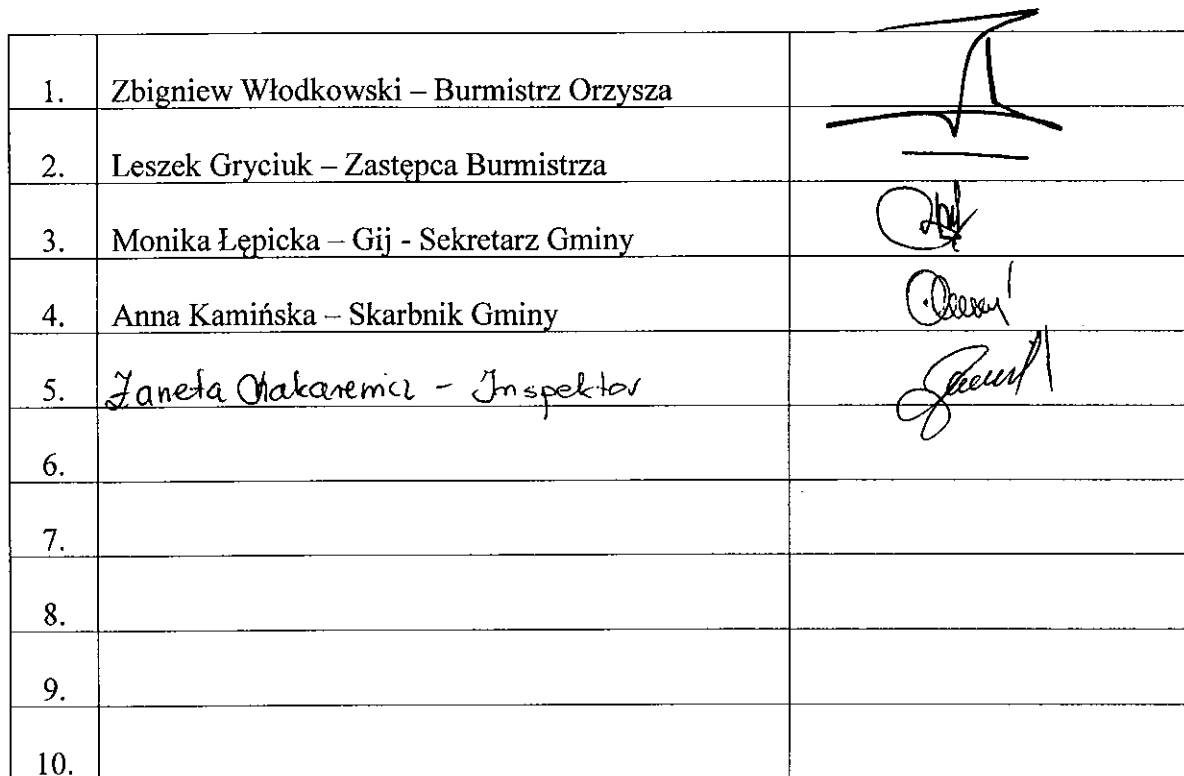 1. Zbigniew Włodkowski – Burmistrz Orzysza
2. Leszek Gryciuk – Zastępca Burmistrza
3. Monika Łępicka – Gij - Sekretarz Gminy
4. Anna Kamińska – Skarbnik Gminy
5. Żaneta Makarewicz - Inspektor
6.
7.
8.
9.
10.